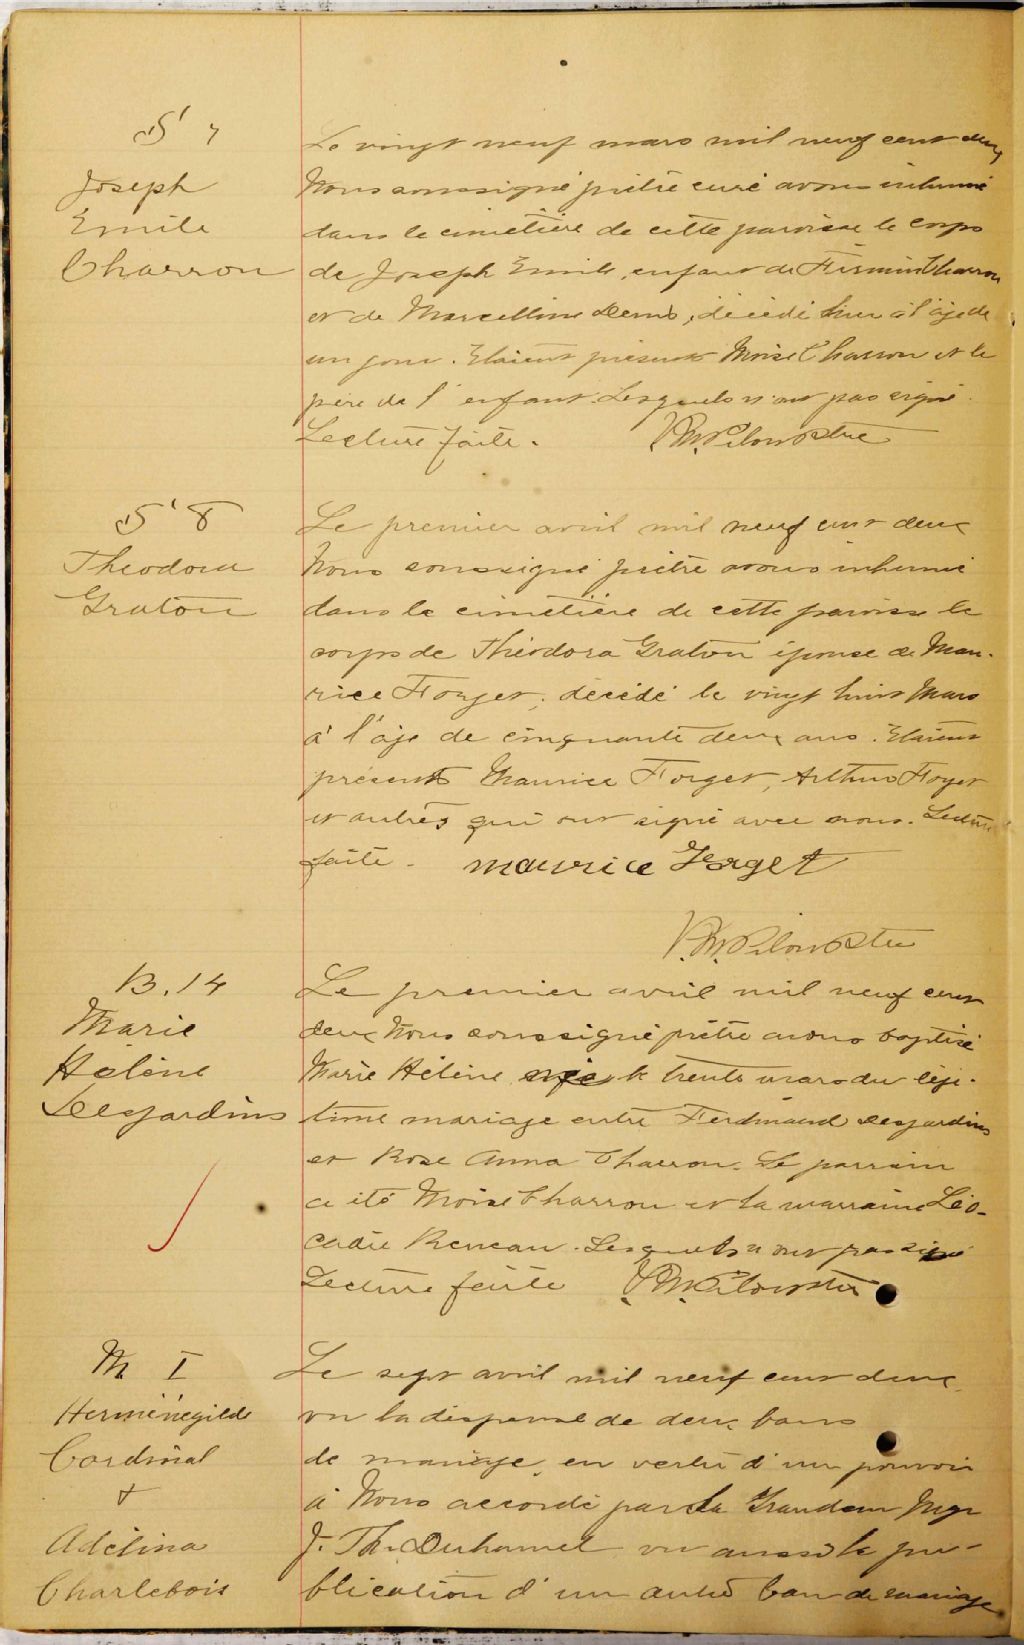 S 7
Joseph
Emile
Charron
Le vingt neuf mars mil neuf cent deux
Nous soussigné prêtre curé avons inhumé
dans le cimetière de cette paroisse le corps
de Joseph Emile, enfant de Firmin Charron
et de Marcelline Demo, décédé hier à l'âge de
un jour. Etaient présents Moise Charron et le
père de l'enfant. Lesquels n'ont pas signé.
Lecture faite.
S 8
Theodora
Graton
Le premier avril mil neuf cent deux
Nous soussigné prêtre avons inhumé
dans le cimetière de cette paroisse le
corps de Théodora Graton épouse de Mau-
rice Forget, décédé le vingt huit Mars
à l'âge de cinquante deux ans. Etaient
présents Maurice Forget, Arthur Forget
et autres qui ont signé avec nous. Lecture
faite. Maurice Forget
B. 14
Marie
Hélène
Desjardins
Le premier avril mil neuf cent
deux Nous soussigné prêtre avons baptisé
Marie Hélène née le trente mars du légi-
time mariage entre Ferdinand Desjardins
et Rose Anna Charron. Le parrain
a été Moise Charron et la marraine Léo-
cadie Reneau. Lesquels n'ont pas signé
Lecture faite
M I
Herménégilde
Cardinal
+
Adélina
Charlebois
Le sept avril mil neuf cent deux,
vu la dispense de deux bans
de mariage, en vertu d'un pouvoir
à Nous accordé par Sa Grandeur Mgr
J. Th. Duhamel vu aussi la pu-
blication d'un autre ban de mariage